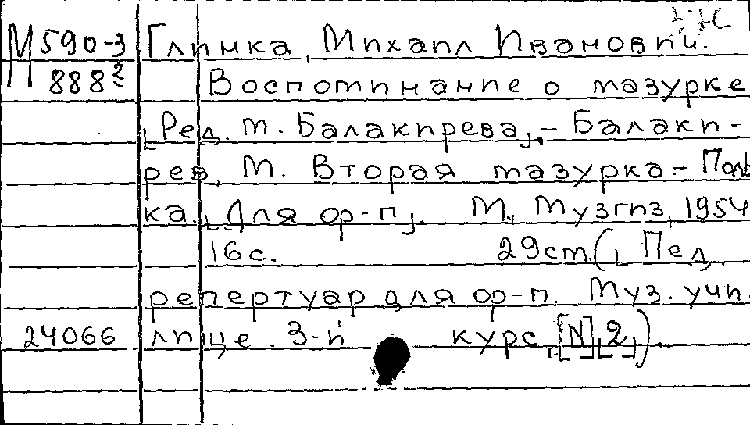 М590-3 Глинка, Михаил Иванович.
888² Воспоминание о мазурке
[Ред. М. Балакирева]. - Балаки-
рев, М. Вторая мазурка - Поль
ка. [Для ф-п]. М., Музгиз, 1954
16 с. 29 cm. ([Пед.
репертуар для ф-п. Муз. учи-
24066 лище. 3-й курс, [N], 2]).